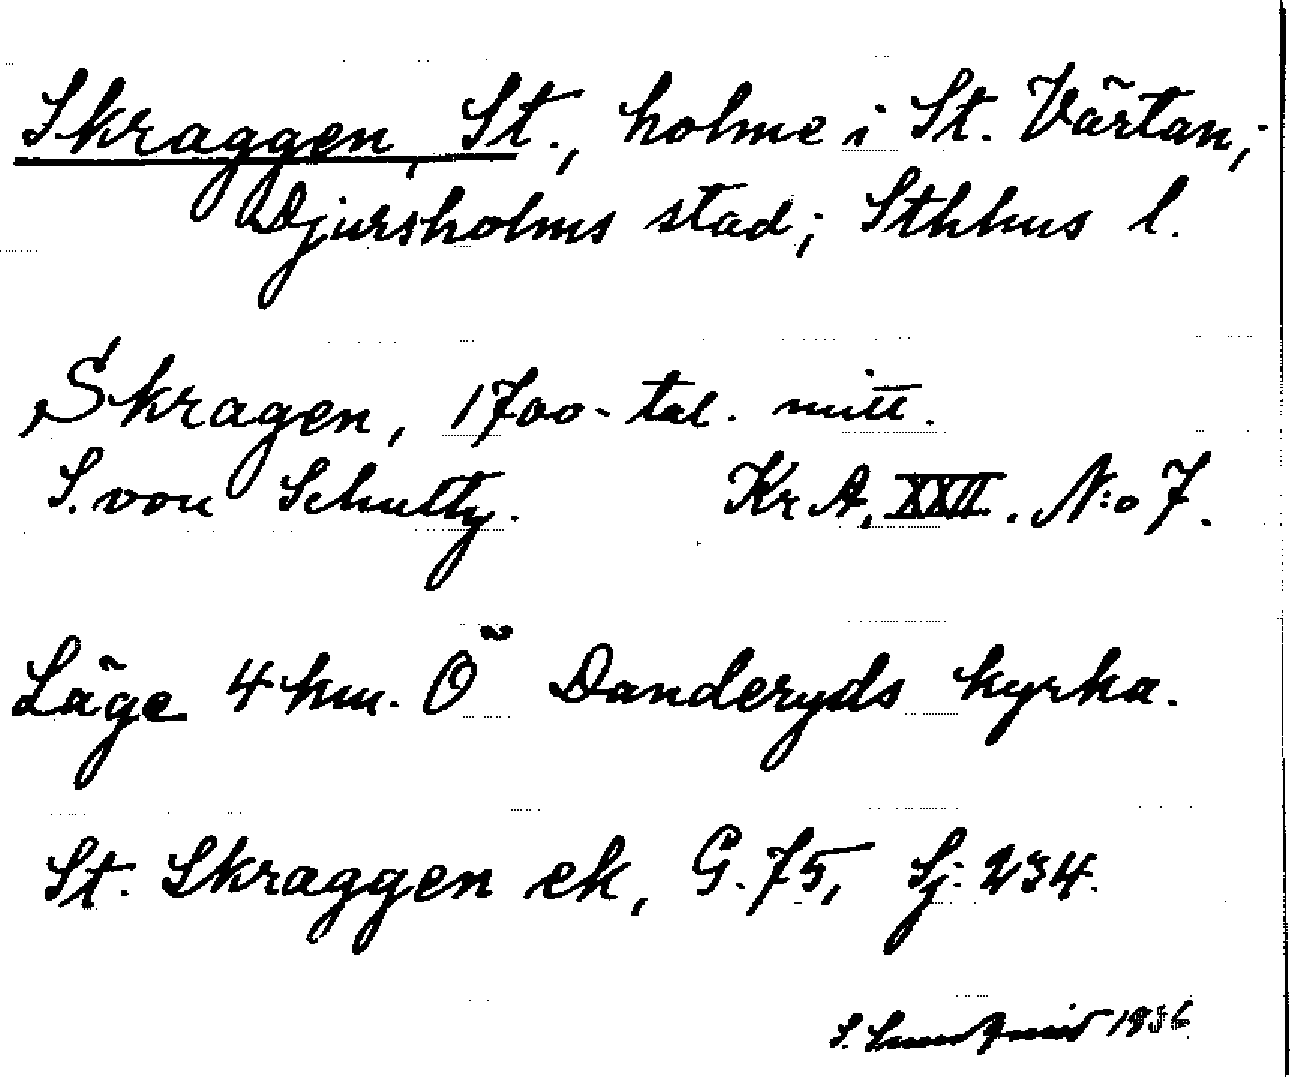 Skraggen, St., holme i St. Värtan;
Djursholms stad; Sthhus l.
Skragen, 1700-tal. mitt.
S. von Schultz. Kr A, XXII. N:o 7.
Läge 4 km. Ö Danderyds kyrka.
St. Skraggen ek, G. 75, Sj. 234.
S. 1936